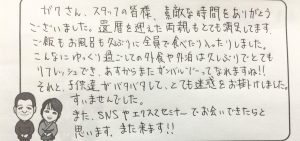 ガクさん、スタッフの皆様、素敵な時間をありがとう
ございました。還暦を迎えた両親もとても満足してます。
ご飯もお風呂も久ぶりに全員で食べたり入ったりしました。
こんなにゆっくり過ごしての外食や外泊は久しぶりでとても
リフレッシュでき、あすからまたガンバルゾーってなれますね!!
それと、子供達がバタバタして、とても迷惑をお掛けしました。
すいませんでした。
また、SNSやエクスマセミナーでお会いできたらと
思います。また来ます!!